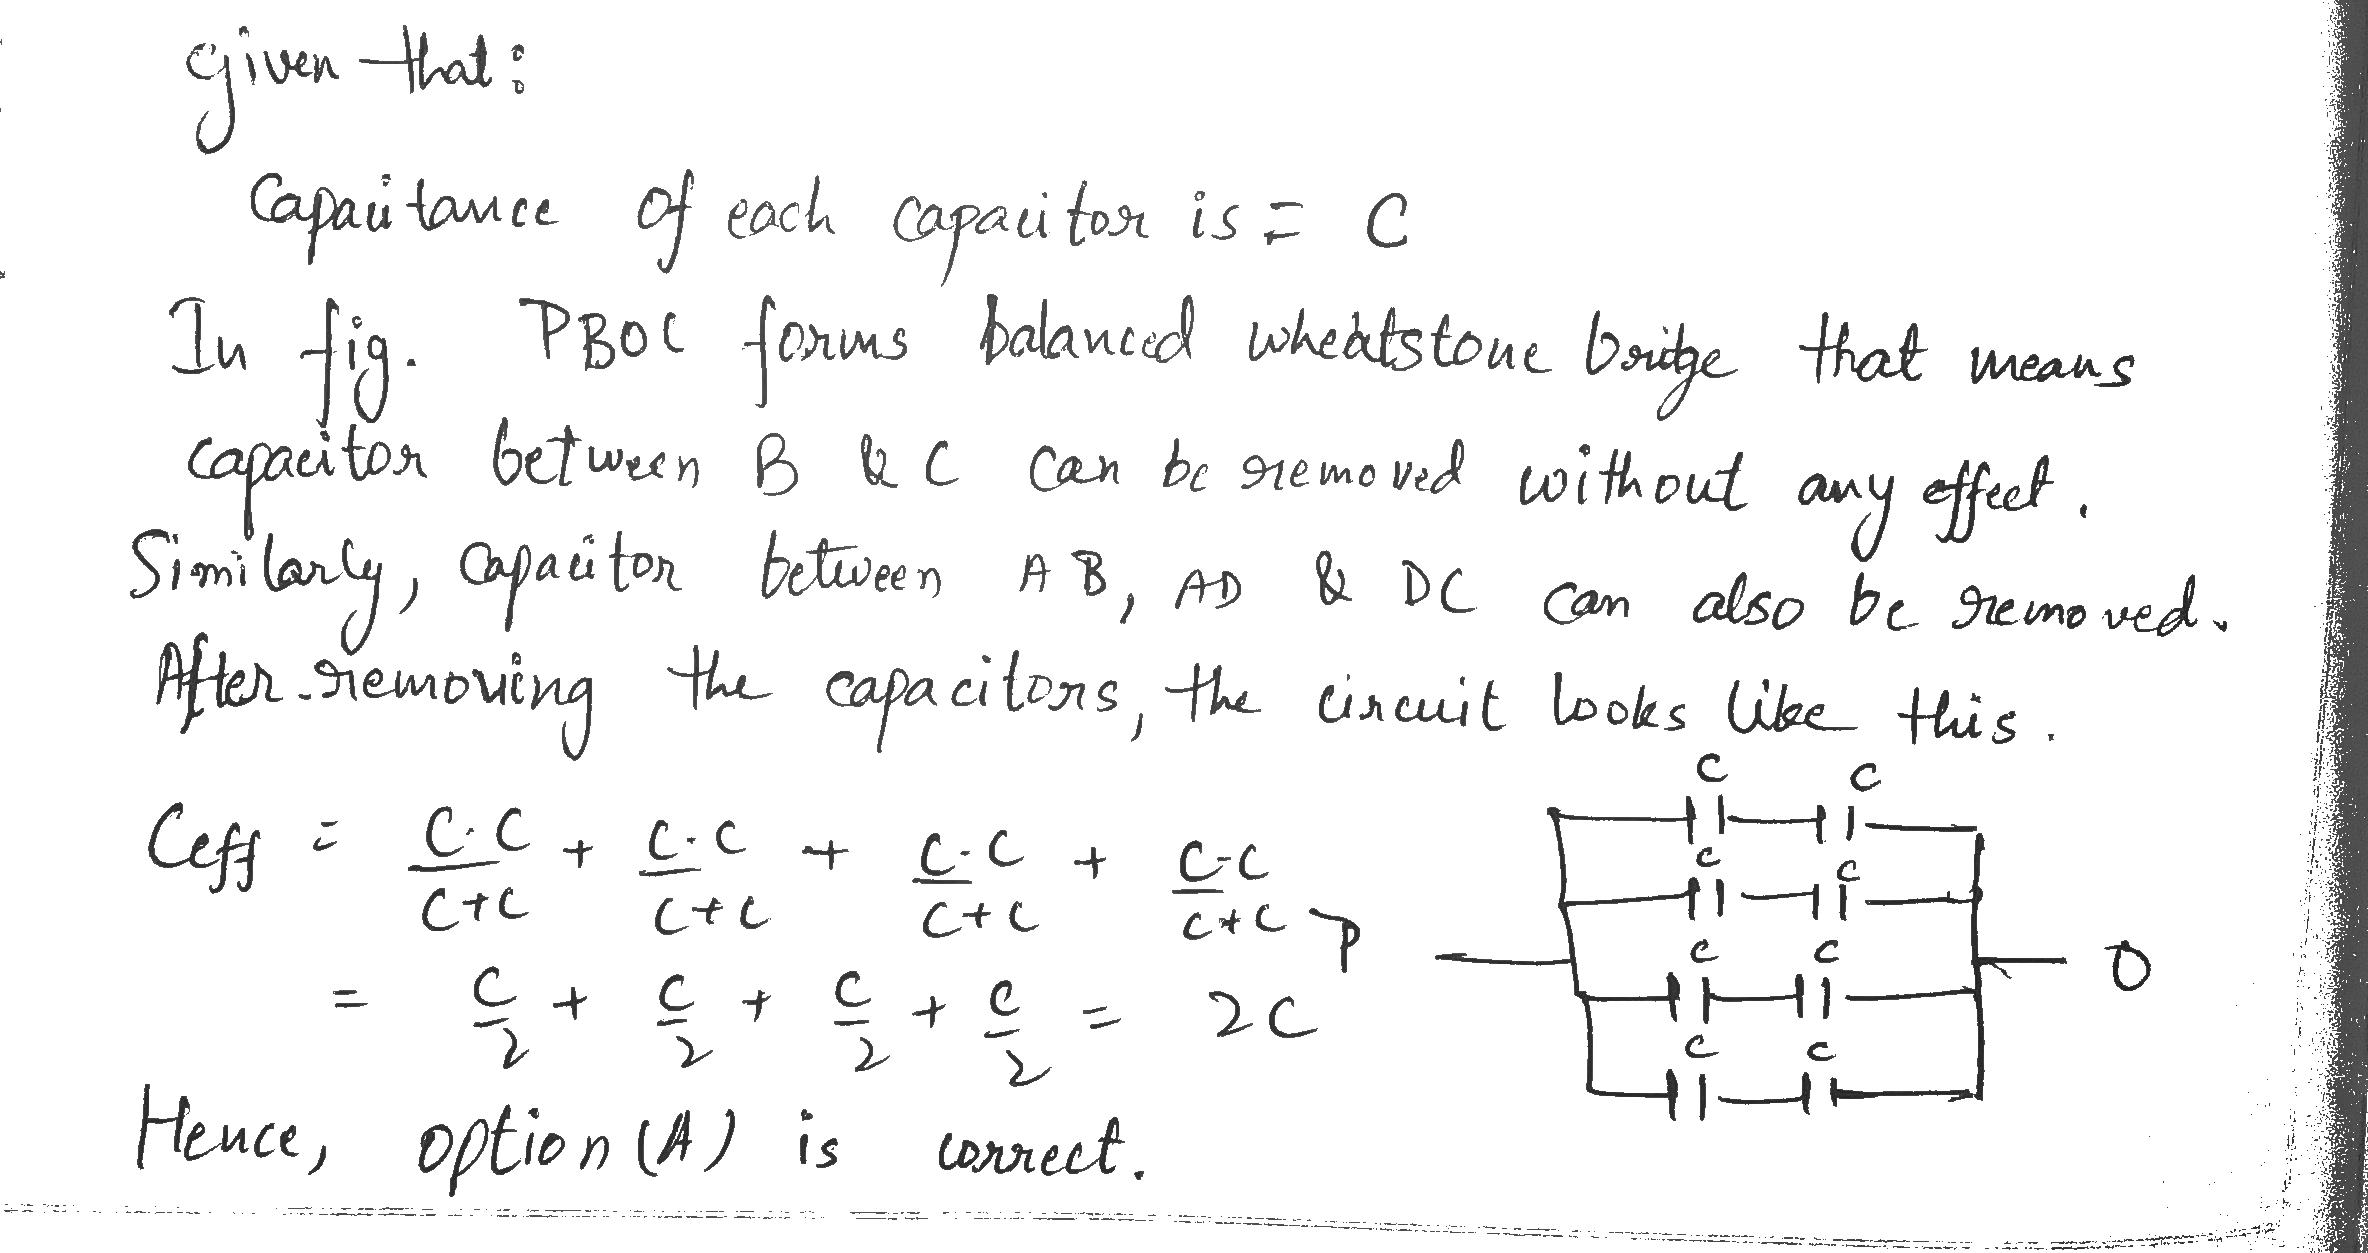 Given that:
Capacitance of each capacitor is = C
In fig. PBOC forms balanced wheatstone bridge that means
capacitor between B & C can be removed without any effect.
Similarly, capacitor between AB, AD & DC can also be removed.
After removing the capacitors, the circuit looks like this.
C C
Ceff = C.C/C+C + C.C/C+C + C.C/C+C + C.C/C+C
C C
P C C O
= C/2 + C/2 + C/2 + C/2 = 2C
C C
Hence, option (A) is correct.